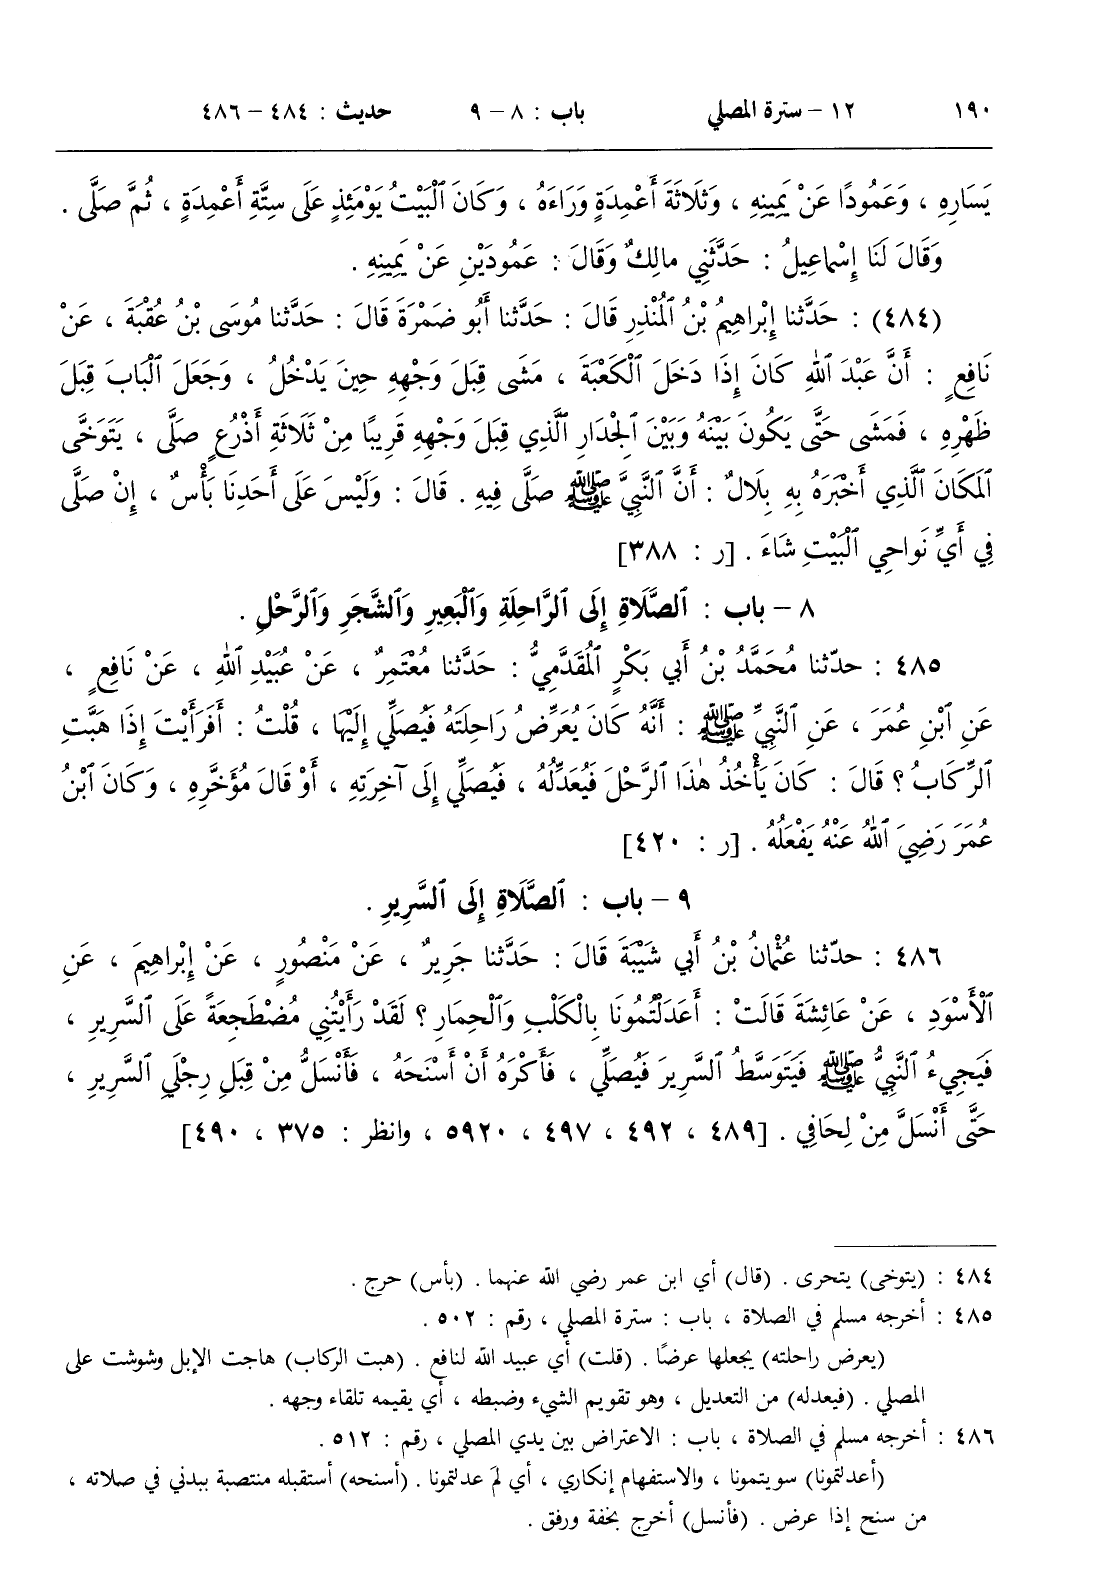 ١٩٠ ١٢ – سترة المصلي باب : ٨ – ٩ حديث : ٤٨٤ – ٤٨٦
يَسَارِهِ ، وَعَمُودًا عَنْ يَمِينِهِ ، وَثَلَاثَةَ أَعْمِدَةٍ وَرَاءَهُ ، وَكَانَ ٱلْبَيْتُ يَوْمَئِذٍ عَلَى سِتَّةِ أَعْمِدَةٍ ، ثُمَّ صَلَّى .
وَقَالَ لَنَا إِسْمَاعِيلُ : حَدَّثَنِي مالِكٌ وَقَالَ : عَمُودَيْنِ عَنْ يَمِينِهِ .
(٤٨٤) : حَدَّثنا إِبْرَاهِيمُ بْنُ ٱلْمُنْذِرِ قَالَ : حَدَّثنا أَبُو ضَمْرَةَ قَالَ : حَدَّثنا مُوسَى بْنُ عُقْبَةَ ، عَنْ
نَافِعٍ : أَنَّ عَبْدَ ٱللهِ كَانَ إِذَا دَخَلَ ٱلْكَعْبَةَ ، مَشَى قِبَلَ وَجْهِهِ حِينَ يَدْخُلُ ، وَجَعَلَ ٱلْبَابَ قِبَلَ
ظَهْرِهِ ، فَمَشَى حَتَّى يَكُونَ بَيْنَهُ وَبَيْنَ ٱلْجِدَارِ ٱلَّذِي قِبَلَ وَجْهِهِ قَرِيبًا مِنْ ثَلَاثَةِ أَذْرُعٍ صَلَّى ، يَتَوَخَّى
ٱلْمَكَانَ ٱلَّذِي أَخْبَرَهُ بِهِ بِلَالٌ : أَنَّ ٱلنَّبِيَّ ﷺ صَلَّى فِيهِ . قَالَ : وَلَيْسَ عَلَى أَحَدِنَا بَأْسٌ ، إِنْ صَلَّى
فِي أَيِّ نَوَاحِي ٱلْبَيْتِ شَاءَ . [ر : ٣٨٨]
٨ – باب : ٱلصَّلَاةِ إِلَى ٱلرَّاحِلَةِ وَٱلْبَعِيرِ وَٱلشَّجَرِ وَٱلرَّحْلِ .
٤٨٥ : حدّثنا مُحَمَّدُ بْنُ أَبِي بَكْرٍ ٱلْمُقَدَّمِيُّ : حَدَّثنا مُعْتَمِرٌ ، عَنْ عُبَيْدِ ٱللهِ ، عَنْ نَافِعٍ ،
عَنِ ٱبْنِ عُمَرَ ، عَنِ ٱلنَّبِيِّ ﷺ : أَنَّهُ كَانَ يُعَرِّضُ رَاحِلَتَهُ فَيُصَلِّي إِلَيْهَا ، قُلْتُ : أَفَرَأَيْتَ إِذَا هَبَّتِ
ٱلرِّكَابُ ؟ قَالَ : كَانَ يَأْخُذُ هٰذَا ٱلرَّحْلَ فَيُعَدِّلُهُ ، فَيُصَلِّي إِلَى آخِرَتِهِ ، أَوْ قَالَ مُؤَخَّرِهِ ، وَكَانَ ٱبْنُ
عُمَرَ رَضِيَ ٱللهُ عَنْهُ يَفْعَلُهُ . [ر : ٤٢٠]
٩ – باب : ٱلصَّلَاةِ إِلَى ٱلسَّرِيرِ .
٤٨٦ : حدّثنا عُثْمَانُ بْنُ أَبِي شَيْبَةَ قَالَ : حَدَّثنا جَرِيرٌ ، عَنْ مَنْصُورٍ ، عَنْ إِبْراهِيمَ ، عَنِ
ٱلْأَسْوَدِ ، عَنْ عَائِشَةَ قَالَتْ : أَعَدَلْتُمُونَا بِالْكَلْبِ وَٱلْحِمَارِ ؟ لَقَدْ رَأَيْتُنِي مُضْطَجِعَةً عَلَى ٱلسَّرِيرِ ،
فَيَجِيءُ ٱلنَّبِيُّ ﷺ فَيَتَوَسَّطُ ٱلسَّرِيرَ فَيُصَلِّي ، فَأَكْرَهُ أَنْ أَسْنَحَهُ ، فَأَنْسَلُّ مِنْ قِبَلِ رِجْلَيِ ٱلسَّرِيرِ ،
حَتَّى أَنْسَلَّ مِنْ لِحَافِي . [٤٨٩ ، ٤٩٢ ، ٤٩٧ ، ٥٩٢٠ ، وانظر : ٣٧٥ ، ٤٩٠]
٤٨٤ : (يتوخى) يتحرى . (قال) أي ابن عمر رضي الله عنهما . (بأس) حرج .
٤٨٥ : أخرجه مسلم في الصلاة ، باب : سترة المصلي ، رقم : ٥٠٢ .
(يعرض راحلته) يجعلها عرضًا . (قلت) أي عبيد الله لنافع . (هبت الركاب) هاجت الإبل وشوشت على
المصلي . (فيعدله) من التعديل ، وهو تقويم الشيء وضبطه ، أي يقيمه تلقاء وجهه .
٤٨٦ : أخرجه مسلم في الصلاة ، باب : الاعتراض بين يدي المصلي ، رقم : ٥١٢ .
(أعدلتمونا) سويتمونا ، والاستفهام إنكاري ، أي لمَ عدلتمونا . (أسنحه) أستقبله منتصبة ببدني في صلاته ،
من سنح إذا عرض . (فأنسل) أخرج بخفة ورفق .